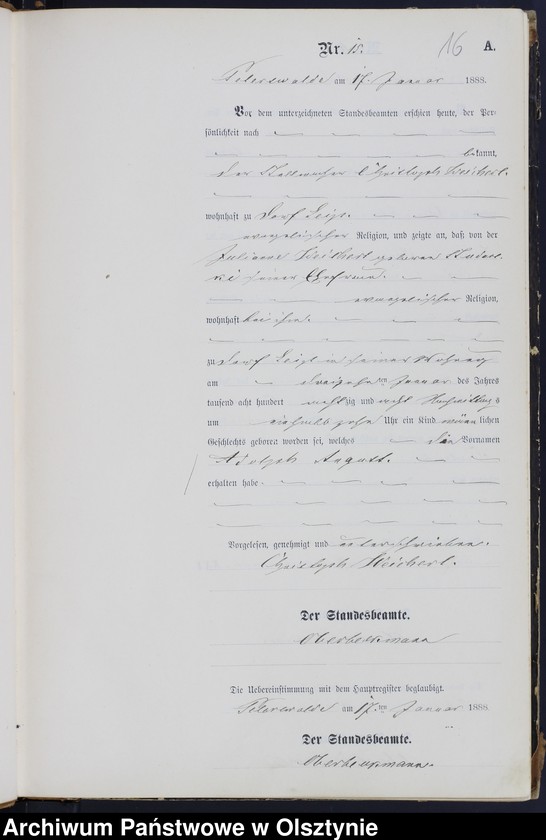 Nr. 15. 16 A.
Peterswalde am 17. Januar 1888.
Vor dem unterzeichneten Standesbeamten erschien heute, der Per-
sönlichkeit nach
bekannt,
der Christoph
wohnhaft zu Dorf
evangelischer Religion, und zeigte an, daß von der
geborenen
seiner Ehefrau
evangelischer Religion,
wohnhaft bei ihm
zu Dorf in seiner Wohnung
am Januar des Jahres
tausend acht hundert achtzig und acht Nachmittags
um Uhr ein Kind männlichen
Geschlechts geboren worden sei, welches die Vornamen
Adolph August.
erhalten habe
Vorgelesen, genehmigt und unterschrieben.
Christoph
Der Standesbeamte.
Die Uebereinstimmung mit dem Hauptregister beglaubigt.
Peterswalde am 17.ten Januar 1888
Der Standesbeamte.
Archiwum Państwowe w Olsztynie